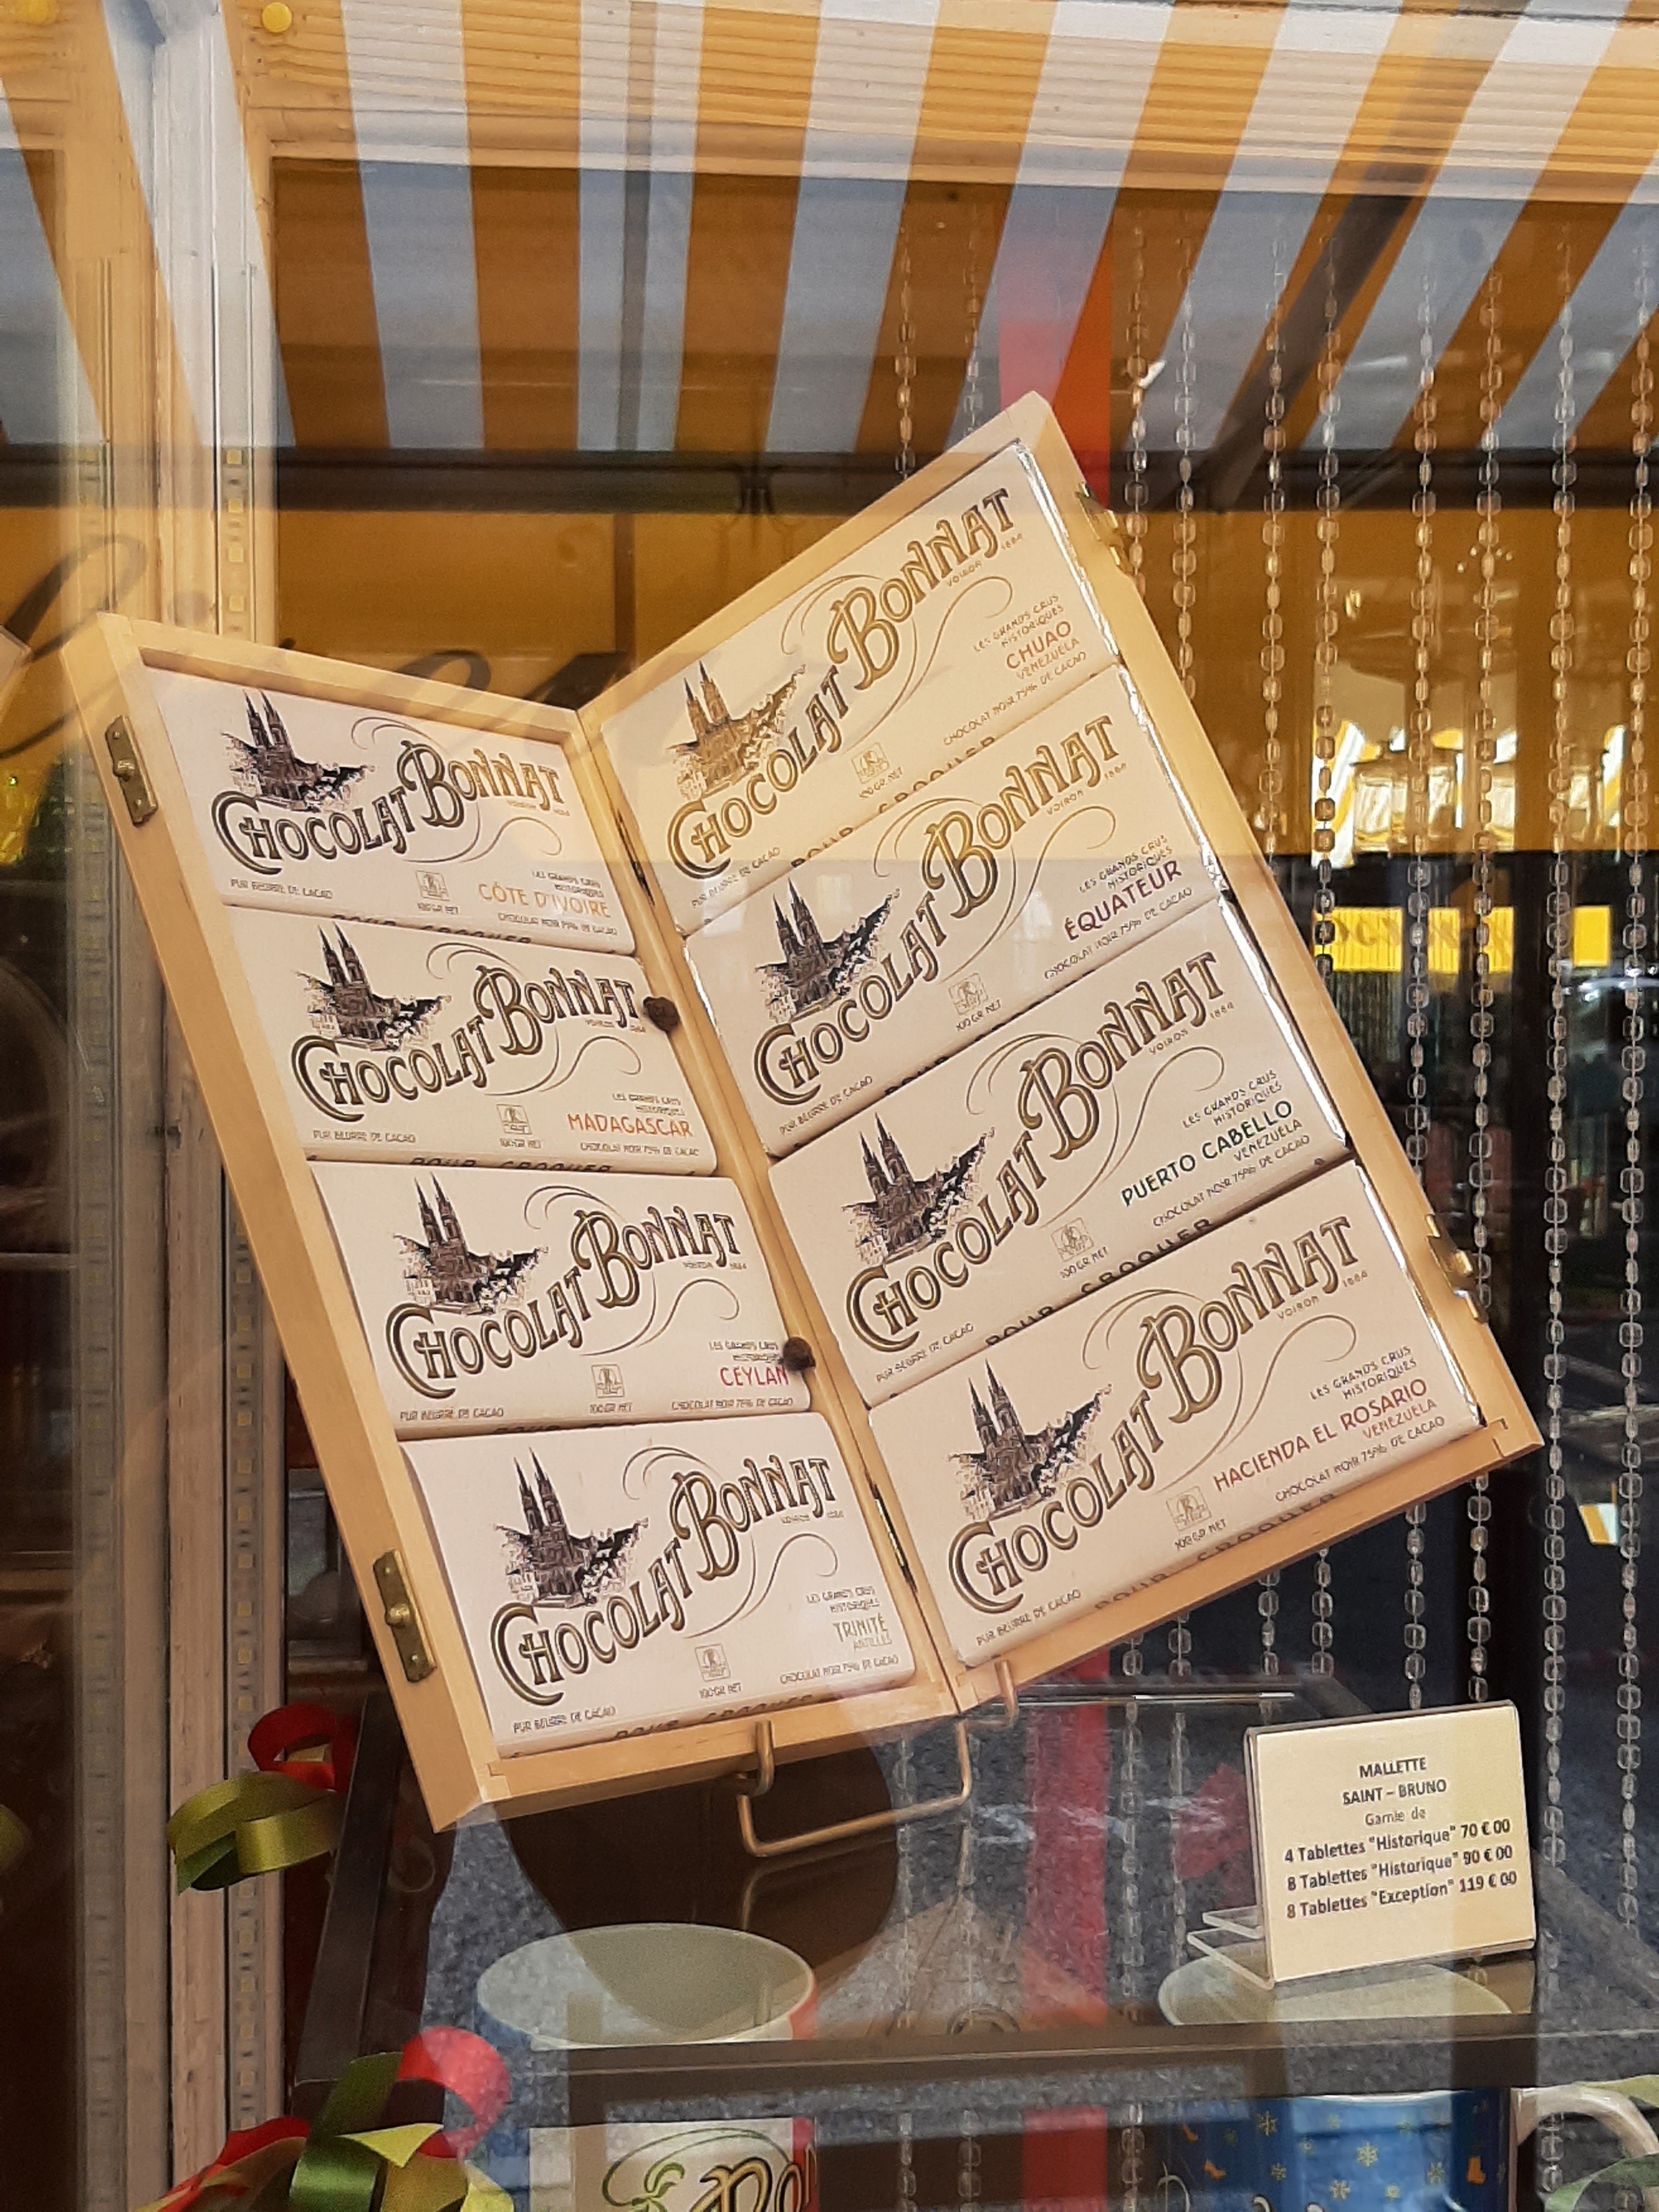 CHOCOLAT BONNAT
VOIRON 1884
PUR BEURRE DE CACAO
100 GR NET
LES GRANDS CRUS
HISTORIQUES
CÔTE D'IVOIRE
CHOCOLAT NOIR 75% DE CACAO
POUR CROQUER
CHOCOLAT BONNAT
VOIRON 1884
PUR BEURRE DE CACAO
100 GR NET
LES GRANDS CRUS
HISTORIQUES
MADAGASCAR
CHOCOLAT NOIR 75% DE CACAO
POUR CROQUER
CHOCOLAT BONNAT
VOIRON 1884
PUR BEURRE DE CACAO
100 GR NET
LES GRANDS CRUS
HISTORIQUES
CEYLAN
CHOCOLAT NOIR 75% DE CACAO
CHOCOLAT BONNAT
VOIRON 1884
PUR BEURRE DE CACAO
100 GR NET
LES GRANDS CRUS
HISTORIQUES
TRINITÉ
ANTILLES
CHOCOLAT NOIR 75% DE CACAO
POUR CROQUER
CHOCOLAT BONNAT
VOIRON 1884
PUR BEURRE DE CACAO
100 GR NET
LES GRANDS CRUS
HISTORIQUES
CHUAO
VENEZUELA
CHOCOLAT NOIR 75% DE CACAO
POUR CROQUER
CHOCOLAT BONNAT
VOIRON 1884
PUR BEURRE DE CACAO
100 GR NET
LES GRANDS CRUS
HISTORIQUES
ÉQUATEUR
CHOCOLAT NOIR 75% DE CACAO
CHOCOLAT BONNAT
VOIRON 1884
PUR BEURRE DE CACAO
100 GR NET
LES GRANDS CRUS
HISTORIQUES
PUERTO CABELLO
VENEZUELA
CHOCOLAT NOIR 75% DE CACAO
POUR CROQUER
CHOCOLAT BONNAT
VOIRON 1884
PUR BEURRE DE CACAO
100 GR NET
LES GRANDS CRUS
HISTORIQUES
HACIENDA EL ROSARIO
VENEZUELA
CHOCOLAT NOIR 75% DE CACAO
POUR CROQUER
MALLETTE
SAINT – BRUNO
Garnie de
4 Tablettes "Historique" 70 € 00
8 Tablettes "Historique" 90 € 00
8 Tablettes "Exception" 119 € 00